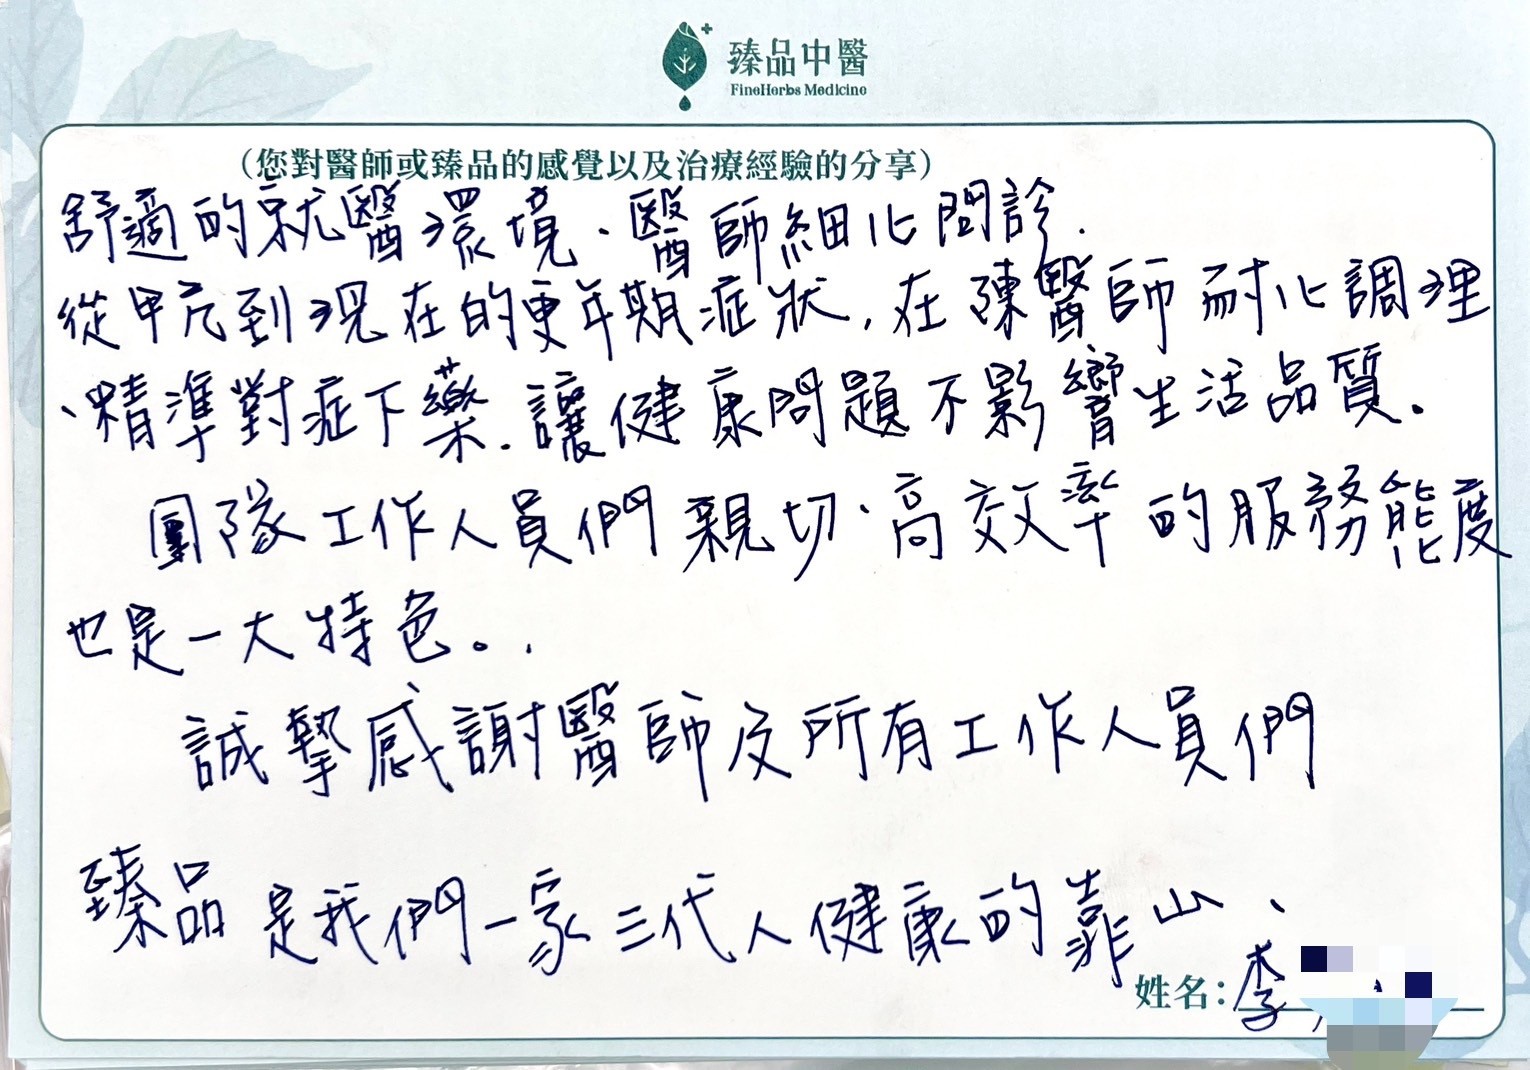 臻品中醫
FineHerbs Medicine
(您對醫師或臻品的感覺以及治療經驗的分享)
舒適的就醫環境、醫師細心問診.
從甲亢到現在的更年期症狀,在陳醫師耐心調理
、精準對症下藥.讓健康問題不影響生活品質。
團隊工作人員們親切、高效率的服務態度
也是一大特色。.
誠摯感謝醫師及所有工作人員們
臻品是我們一家三代人健康的靠山、
姓名:李